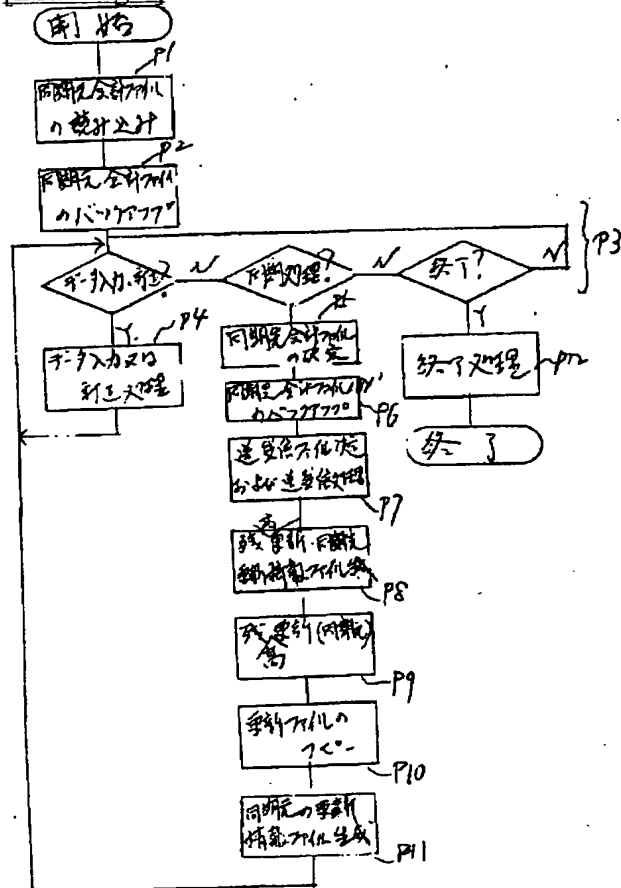 開始
P1
同期元会計ファイル
の読み込み
P2
同期元会計ファイル
のバックアップ
P3
データ入力・訂正?
N
同期処理?
N
終了?
N
Y
P4
データ入力又は
訂正処理
P5
同期先会計ファイル
の決定
同期先会計ファイル
のバックアップ
P6
Y
終了処理
P12
終了
送受信ファイル決定
および送受信処理
P7
残高更新・同期先
更新情報ファイル生成
P8
残高更新(同期元)
P9
更新ファイルの
コピー
P10
同期元の更新
情報ファイル生成
P11